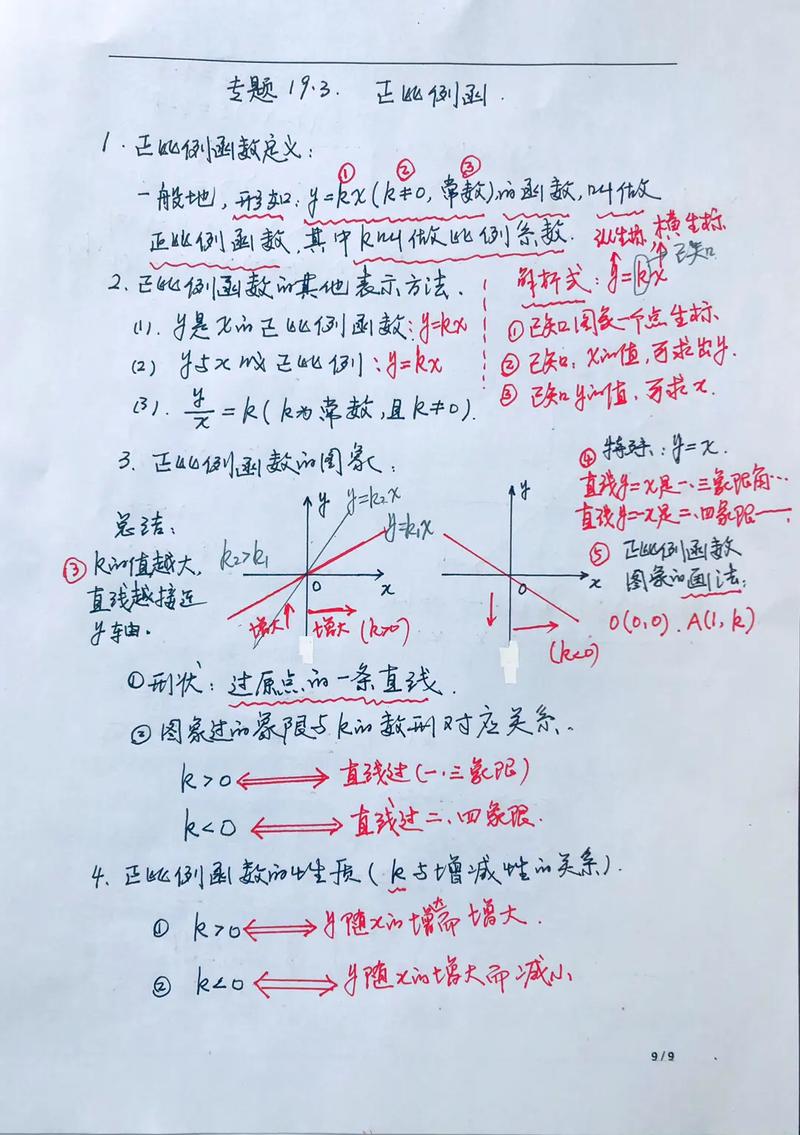 专题 19.3. 正比例函.
1. 正比例函数定义:
① ② ③
一般地, 形如: y=kx(k≠0, 常数)的函数, 叫做
正比例函数, 其中k叫做比例系数.
纵坐标 横坐标
2. 正比例函数的其他表示方法.
(1). y是x的正比例函数: y=kx
(2) y与x成正比例: y=kx
(3). y/x = k (k为常数, 且k≠0).
解析式: y=kx 已知
① 已知图象一个点坐标
② 已知: x的值, 可求出y.
③ 已知y的值, 可求x.
3. 正比例函数的图象:
④ 特殊: y=x.
直线y=x是一、三象限角…
直线y=-x是二、四象限——.
⑤ 正比例函数
图象的画法:
O(0,0). A(1,k)
总结:
③ k的值越大,
直线越接近
y轴.
k₂>k₁
y y=k₂x
y=k₁x
O x
增大 增大 (k>0)
y
O x
(k<0)
①形状: 过原点的一条直线.
② 图象过的象限与k的数形对应关系.
k>0 ⟺ 直线过(一、三象限)
k<0 ⟺ 直线过二、四象限.
4. 正比例函数的性质(k与增减性的关系).
① k>0 ⟺ y随x的增大而增大.
② k<0 ⟺ y随x的增大而减小
9/9